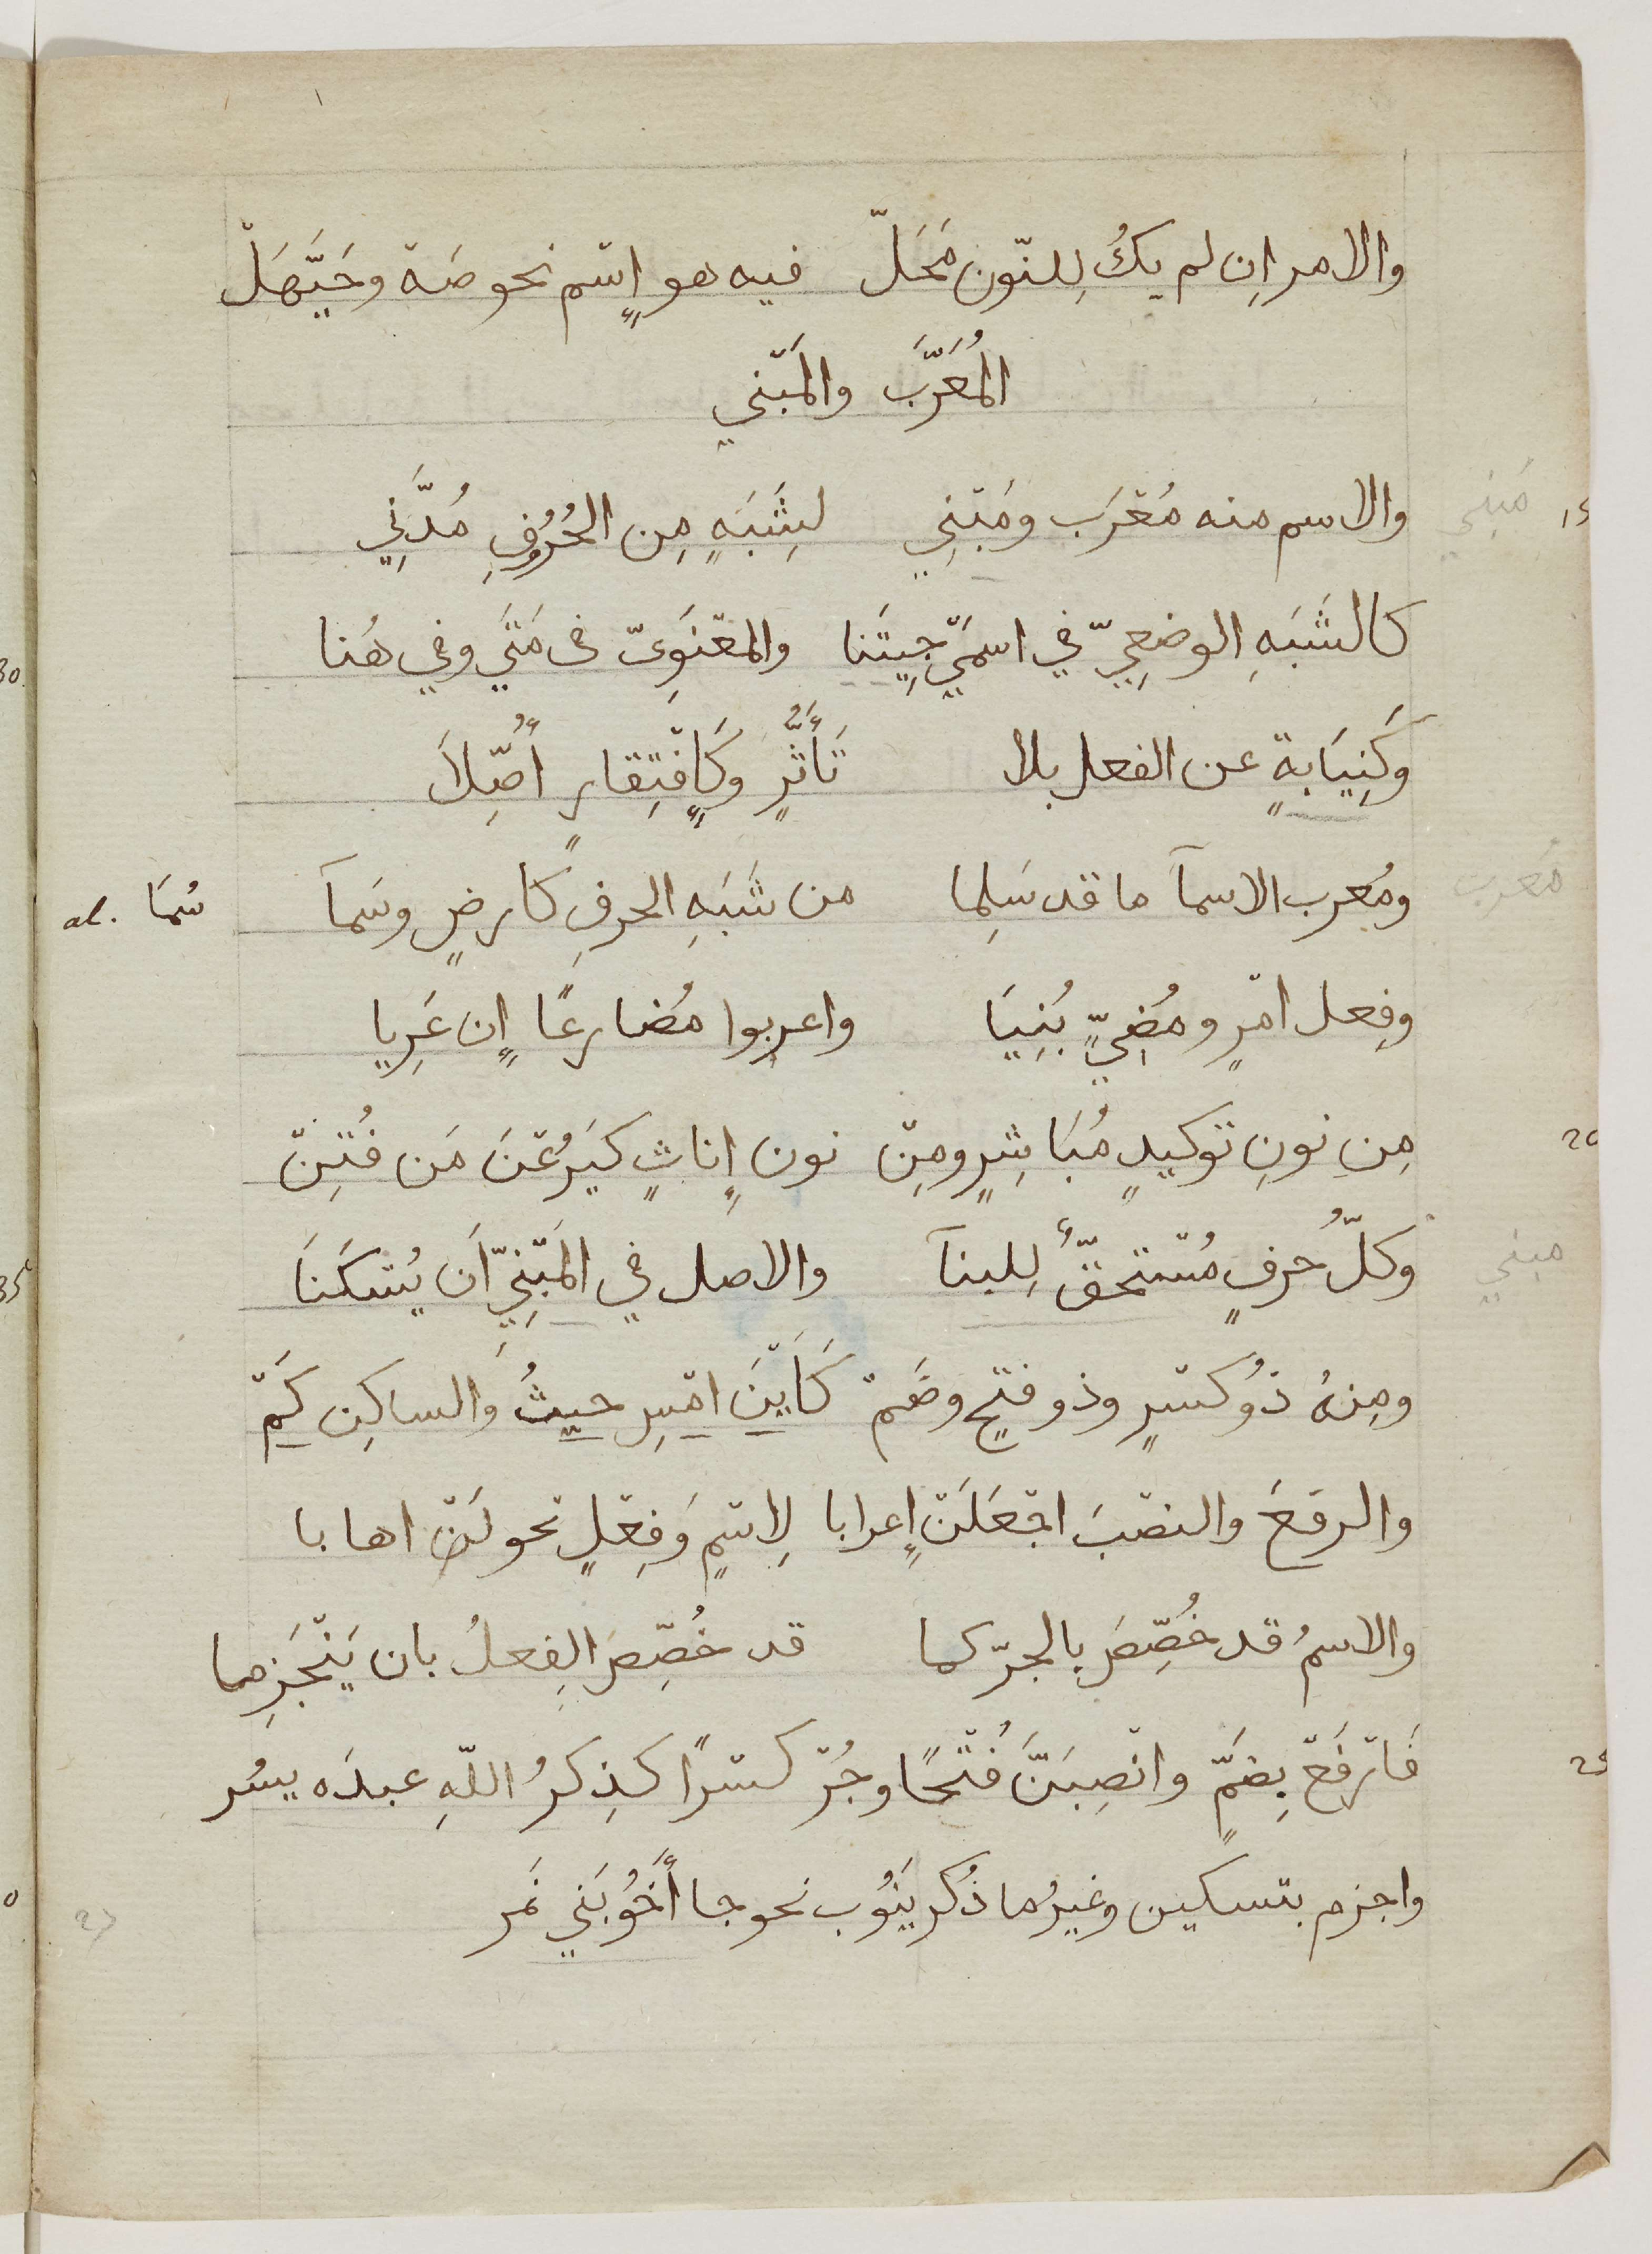 والامر اِن لم يكُ لِلنّون مَحَلّ فيه هو إِسْم نحو صَهْ وحَيَّهَلْ
المُعَرَّبَ والمَبْني
والاسم منه مُعْرَب ومَبْنِي لِشَبَهٍ مِن الحُرُوفِ مُدَّنِي
مَبنِي 15
كالشَبَهِ الوضعِيّ في اسمَيّ جِيتَنا والمعْنَوِىّ فى مَتَي وفي هُنا
وَكَنِيَابةٍ عن الفعل بلا تَأَثَّرٍ وكَإِفْتِقارٍ أُصِّلاَ
ومُعرب الاسمآ ما قد سَلِما من شَبَهِ الحرفِ كارضٍ وسَمآ
مُعرب
سُمَا al.
وفِعل امْرٍ ومُضِيٍّ بُنِيَا واعربوا مُضارعًا إِن عَرِيا
مِن نونِ توكيدٍ مُبَاشِرٍ ومِنْ نون إِناثٍ كَيَرُعْنَ مَن فُتِنْ
20
وكلّ حُرفٍ مُسْتحقّ لِلبنآ والاصل في المَبْنِيّ اَن يُسْكَنَا
مبني
ومِنهُ ذُو كسْرٍ وذو فتحٍ وضَمْ كَاَيْنَ امْسِ حيثُ وَالساكِن كَمْ
والرفعَ والنصْبَ اجْعَلَنْ إِعرابا لِاسْمٍ وَفِعْلٍ نحو لَنْ اهابا
والاسمُ قد خُصِّصَ بالجرّ كما قد خُصِّصَ الفِعلُ بان يَنْجَزِما
فَارْفَعْ بِضَمٍّ وانْصِبَنَّ فُتْحًا وجُرّ كسْرًا كذِكرُ اللّهِ عبدَه يسُر
25
واجزم بتسكين وغيرُ ما ذُكر يَنُوب نحو جا أَخُو بَني نَمَر